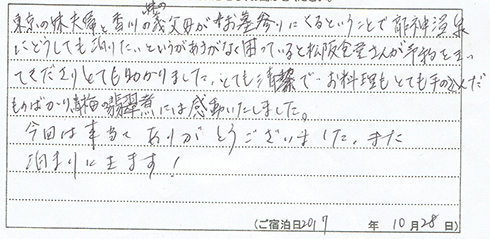 東京の妹夫婦と香川の妹の義父母がお墓参りにくるということで龍神温泉
にどうしても泊りたいというがあきがなく困っていると松阪屋さんが予約をとっ
てくださりとても助かりました。とても清潔で、お料理もとても手の込んだ
ものばかり青梅の翡翠煮には感動いたしました。
今回は本当にありがとうございました。また
泊まりに来ます！
(ご宿泊日2017 年 10月28日)